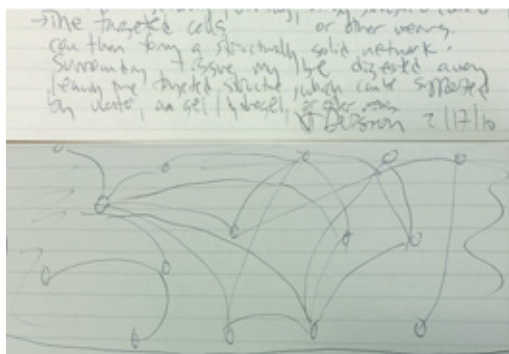 →The targeted cells or other means.
can then form a structurally solid network.
Surrounding tissue my be digested away
leaving the targeted structure, which can be supported
by water, an gel / hydrogel, or other means
Deisseroth 2/17/10